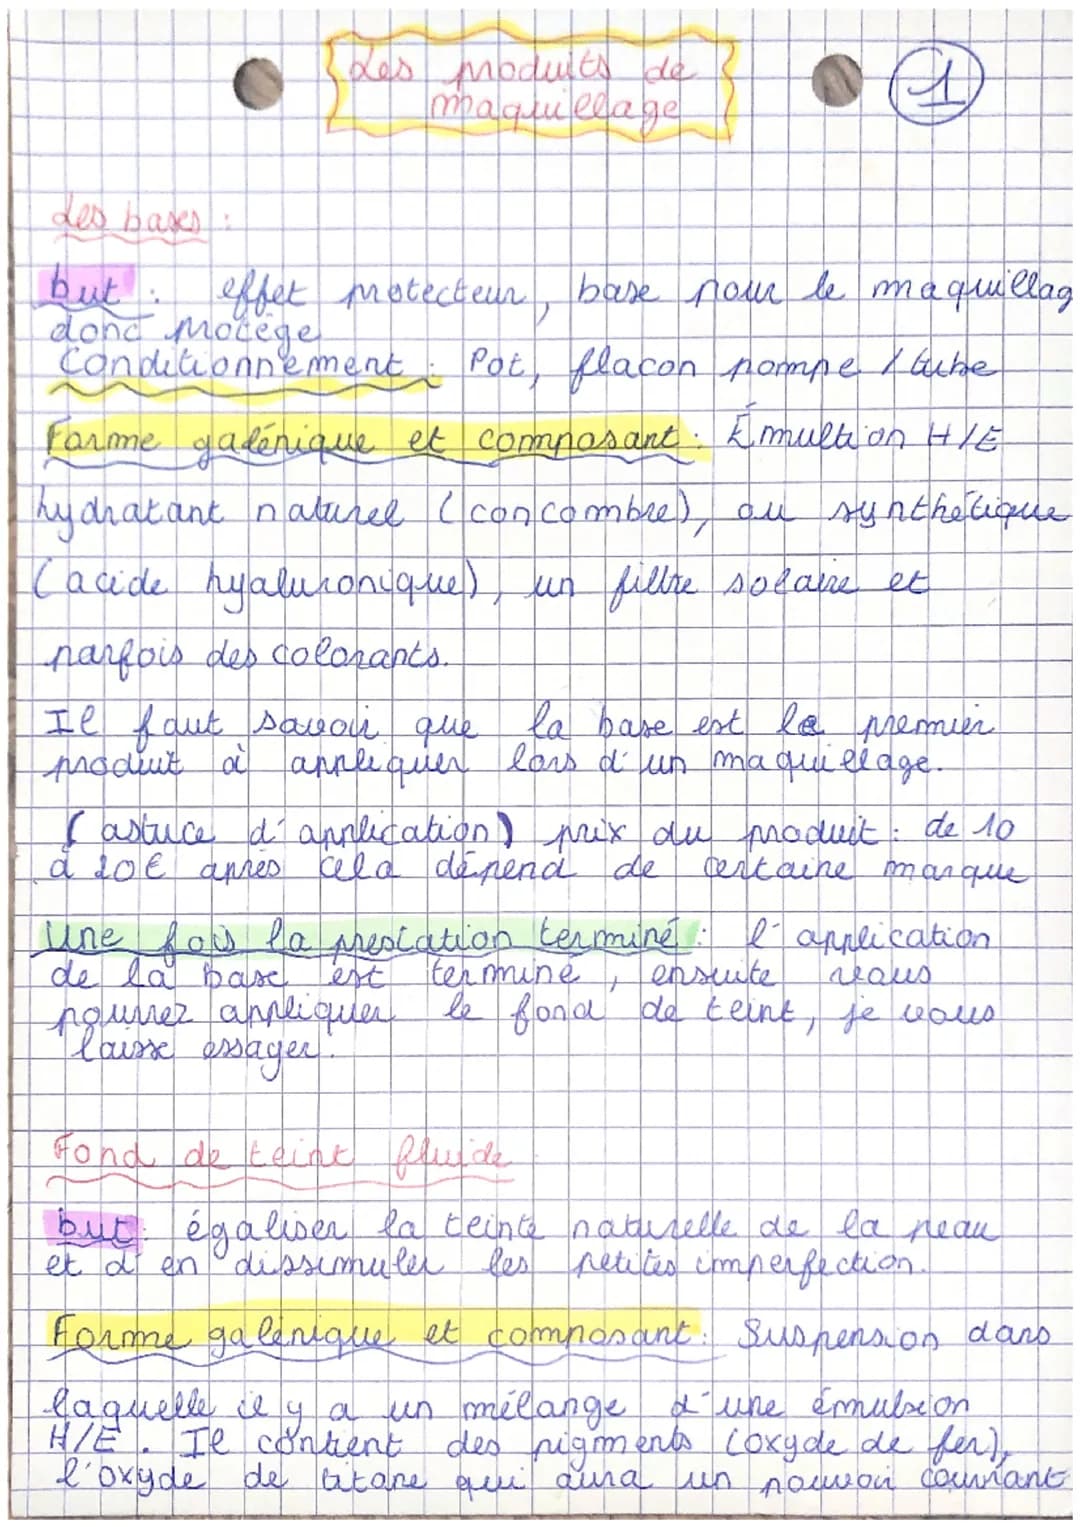 Les produits de
maquillage
1
Les bases :
but : effet protecteur, base pour le maquillag
donc protège
Conditionnement : Pot, flacon pompe / tube
Forme galénique et composant : Émultion H/E
hydratant naturel (concombre), ou synthétique
(acide hyaluronique), un filtre solaire et
parfois des colorants.
Il faut savoir que la base est le premier
produit à appliquer lors d'un maquillage.
(astuce d'application) prix du produit : de 10
à 20€ après cela dépend de certaine marque
Une fois la prestation terminé : l'application
de la base est terminé, ensuite vous
pourrez appliquer le fond de teint, je vous
laisse essayer.
Fond de teint fluide
but : égaliser la teinte naturelle de la peau
et d'en dissimuler les petites imperfection.
Forme galénique et composant : Suspension dans
laquelle il y a un mélange d'une émulsion
H/E. Il contient des pigments (oxyde de fer),
l'oxyde de titane qui aura un pouvoir couvrant